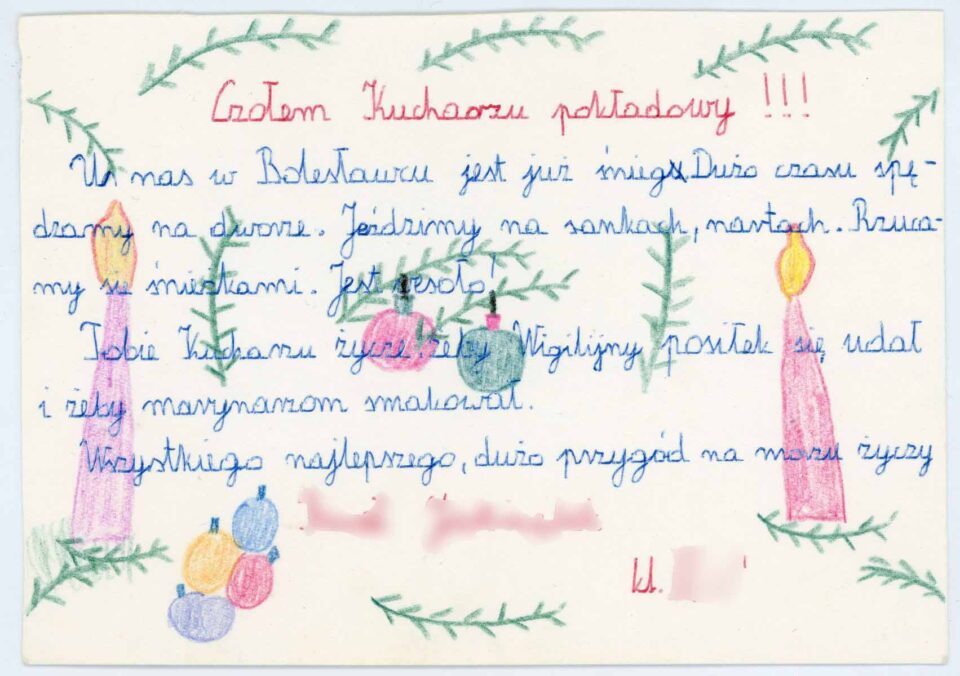 Czołem Kucharzu pokładowy !!!
U nas w Bolesławcu jest już śnieg. Dużo czasu spę-
dzamy na dworze. Jeździmy na sankach, nartach. Rzuca-
my się śnieżkami. Jest wesoło!
Tobie Kucharzu życzę, żeby Wigilijny posiłek się udał
i żeby marynarzom smakował.
Wszystkiego najlepszego, dużo przygód na morzu życzy
kl.